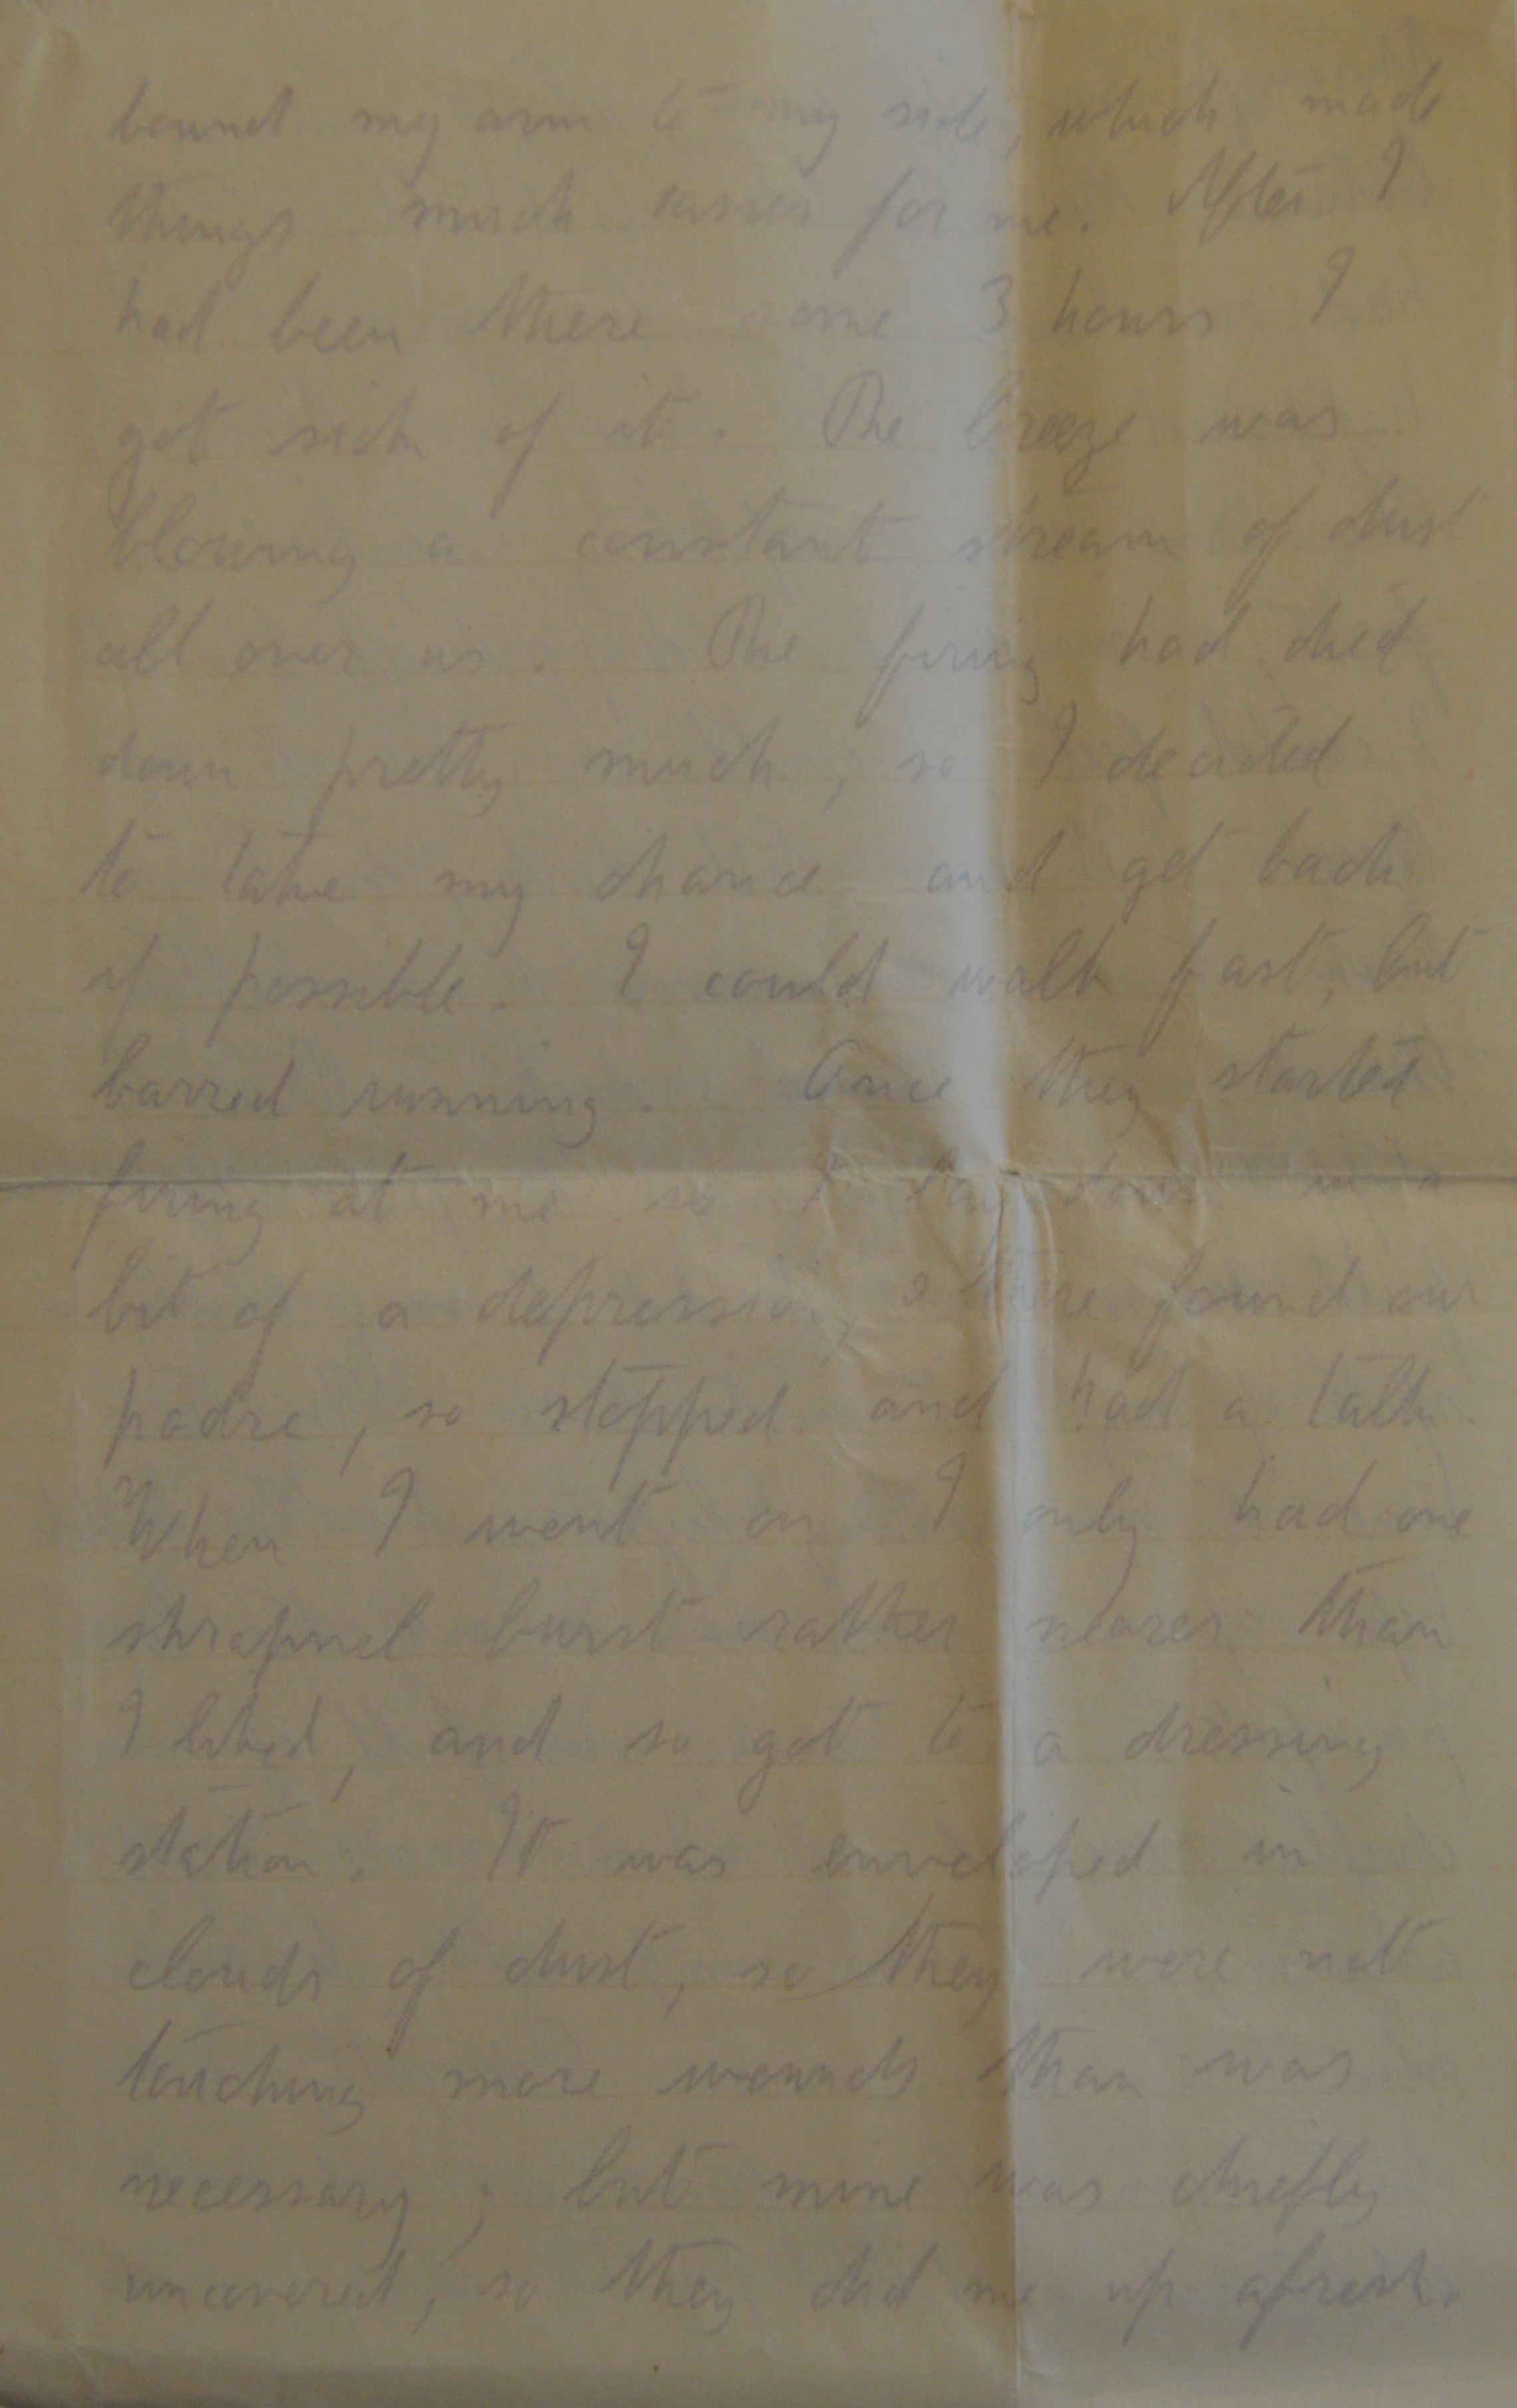 bound my arm to my side, which made
things much easier for me. After I
had been there some 3 hours I
got sick of it. The breeze was
blowing a constant stream of dust
all over us. The firing had died
down pretty much, so I decided
to take my chance and get back
if possible. I could walk fast, but
barred running. Once they started
firing at me so I lay down in a
bit of a depression, & there found our
padre, so stopped and had a talk.
When I went on I only had one
shrapnel burst rather nearer than
I liked, and so got to a dressing
station. It was enveloped in
clouds of dust, so they were not
touching more wounds than was
necessary; but mine was chiefly
uncovered, so they did me up afresh.